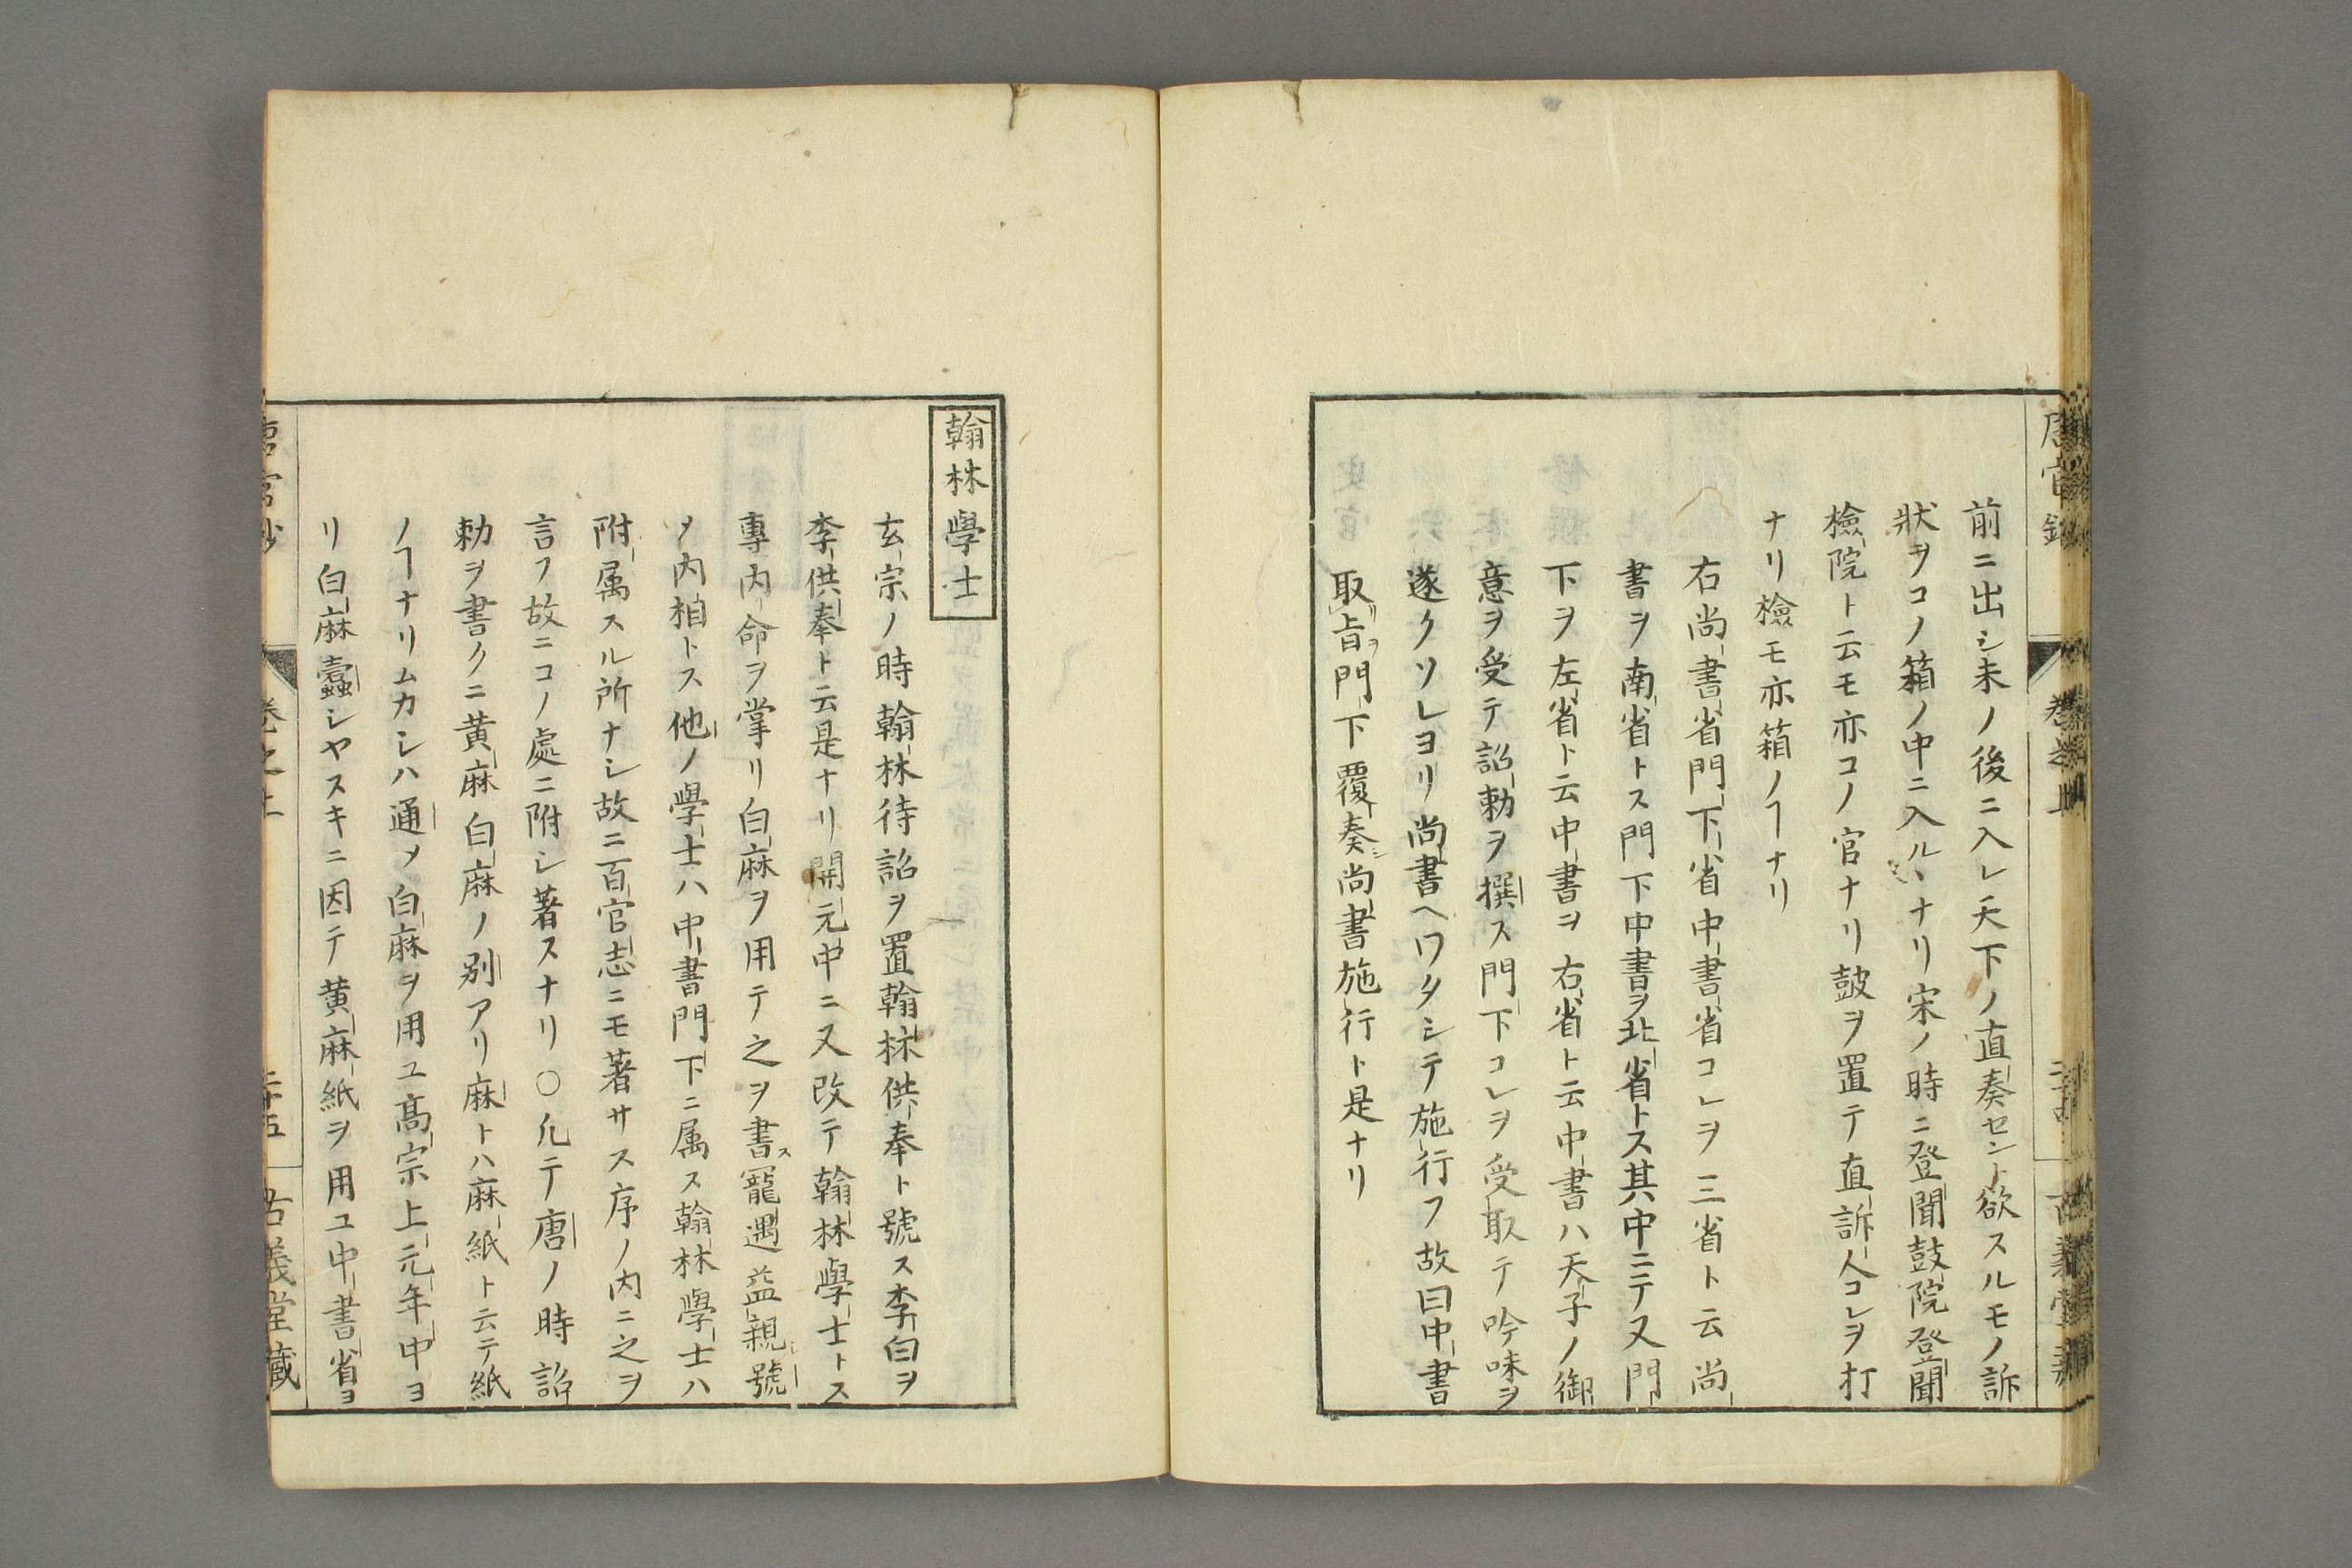 前ニ出シ未ノ後ニ入レ天下ノ直奏セント欲スルモノ訴
狀ヲコノ箱ノ中ニ入ルヽナリ宋ノ時ニ登聞鼓院登聞
檢院ト云モ亦コノ官ナリ鼓ヲ置テ直訴人コレヲ打
ナリ檢モ亦箱ノヿナリ
右尚書省門下省中書省コレヲ三省ト云尚
書ヲ南省トス門下中書ヲ北省トス其中ニテ又門
下ヲ左省ト云中書ヲ右省ト云中書ハ天子ノ御
意ヲ受テ詔勅ヲ撰ス門下コレヲ受取テ吟味ヲ
遂クソレヨリ尚書ヘワタシテ施行フ故曰中書
取旨門下覆奏尚書施行ト是ナリ
翰林學士
玄宗ノ時翰林待詔ヲ置翰林供奉ト號ス李白ヲ
李供奉ト云是ナリ開元中ニ又改テ翰林學士トス
專内命ヲ掌リ白麻ヲ用テ之ヲ書ス寵遇益親シ號
ヲ内相トス他ノ學士ハ中書門下ニ属ス翰林學士ハ
附属スル所ナシ故ニ百官志ニモ著サス序ノ内ニ之ヲ
言フ故ニコノ處ニ附シ著スナリ〇凢テ唐ノ時詔
勅ヲ書クニ黄麻白麻ノ別アリ麻トハ麻紙ト云テ紙
ノヿナリムカシハ通メ白麻ヲ用ユ髙宗上元年中ヨ
リ白麻蠹シヤスキニ因テ黄麻紙ヲ用ユ中書省ヨ
唐官鈔
卷之上
二十五
古義堂藏